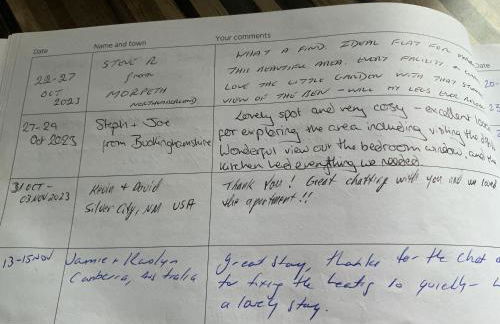 Date Name and town Your comments
22-27
OCT
2023
STEVE R
from
MORPETH
NORTHUMBERLAND
WHAT A FIND. IDEAL FLAT FOR
THIS BEAUTIFUL AREA. EVERY FACILITY +
LOVE THE LITTLE GARDEN WITH THAT
VIEW OF THE BEN - WILL MY LEGS EVER
27-29
Oct 2023
Steph + Joe
from Buckinghamshire
Lovely spot and very cosy - excellent
for exploring the area including visiting the
Wonderful view out the bedroom window, and the
kitchen had everything we needed.
31 OCT -
03 NOV 2023
Kevin + David
Silver City, NM USA
Thank You! Great chatting with you and we loved
the apartment!!!
13-15 NOV
Jamie + Kaolyn
Canberra, Australia
Great stay, thanks for the chat
for fixing the heating so quickly -
a lovely stay.